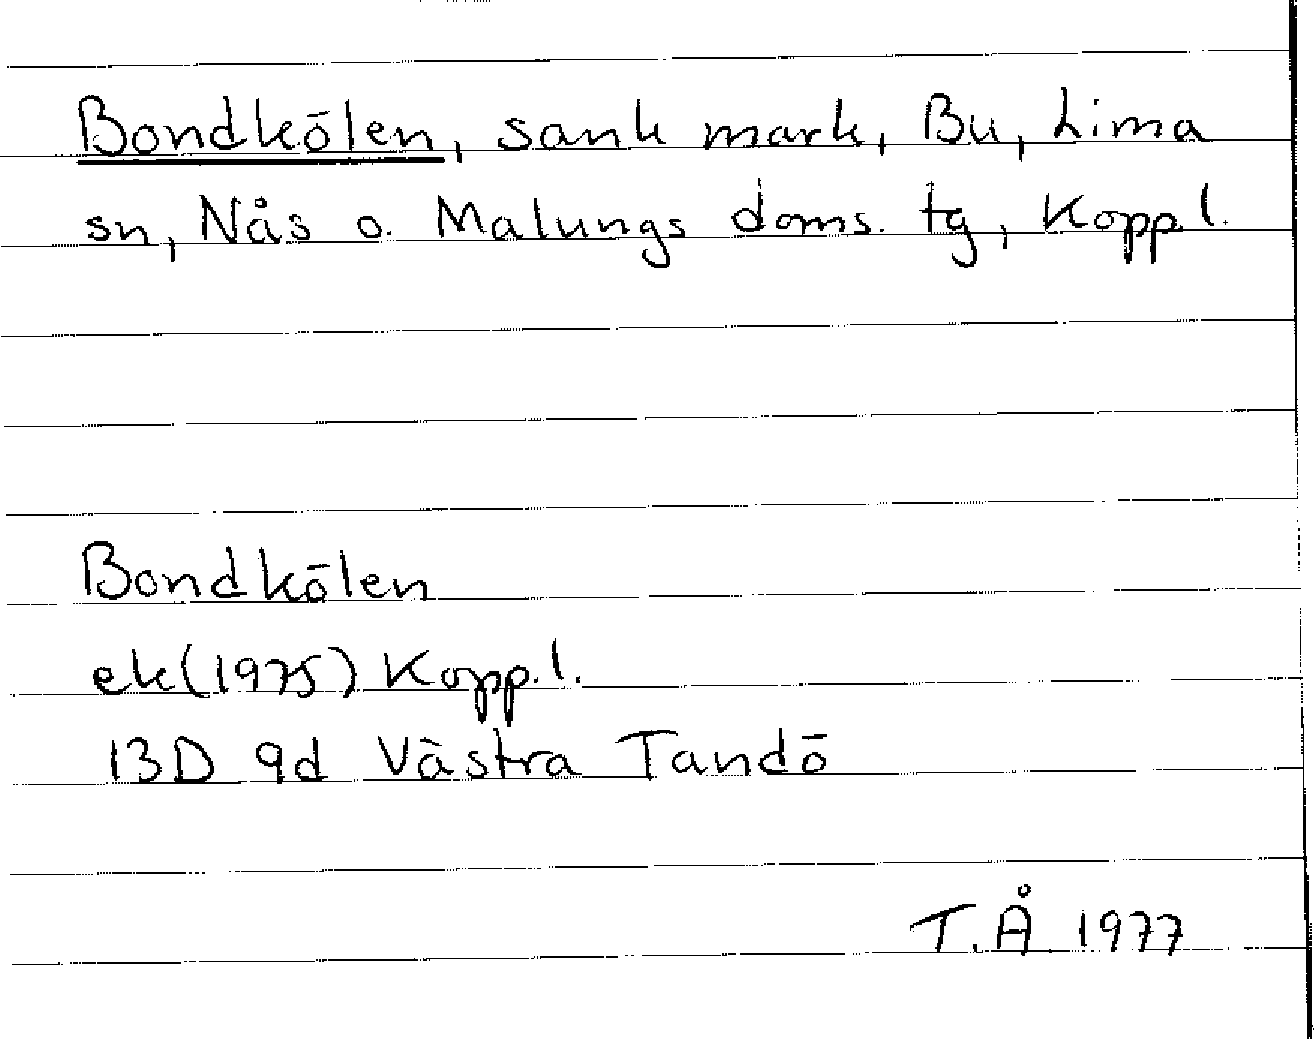 Bondkölen, sank mark, Bu, Lima
sn, Nås o. Malungs doms. tg, Kopp.l.
Bondkölen
ek(1975) Kopp.l.
13D 9d Västra Tandö
T.Å 1977